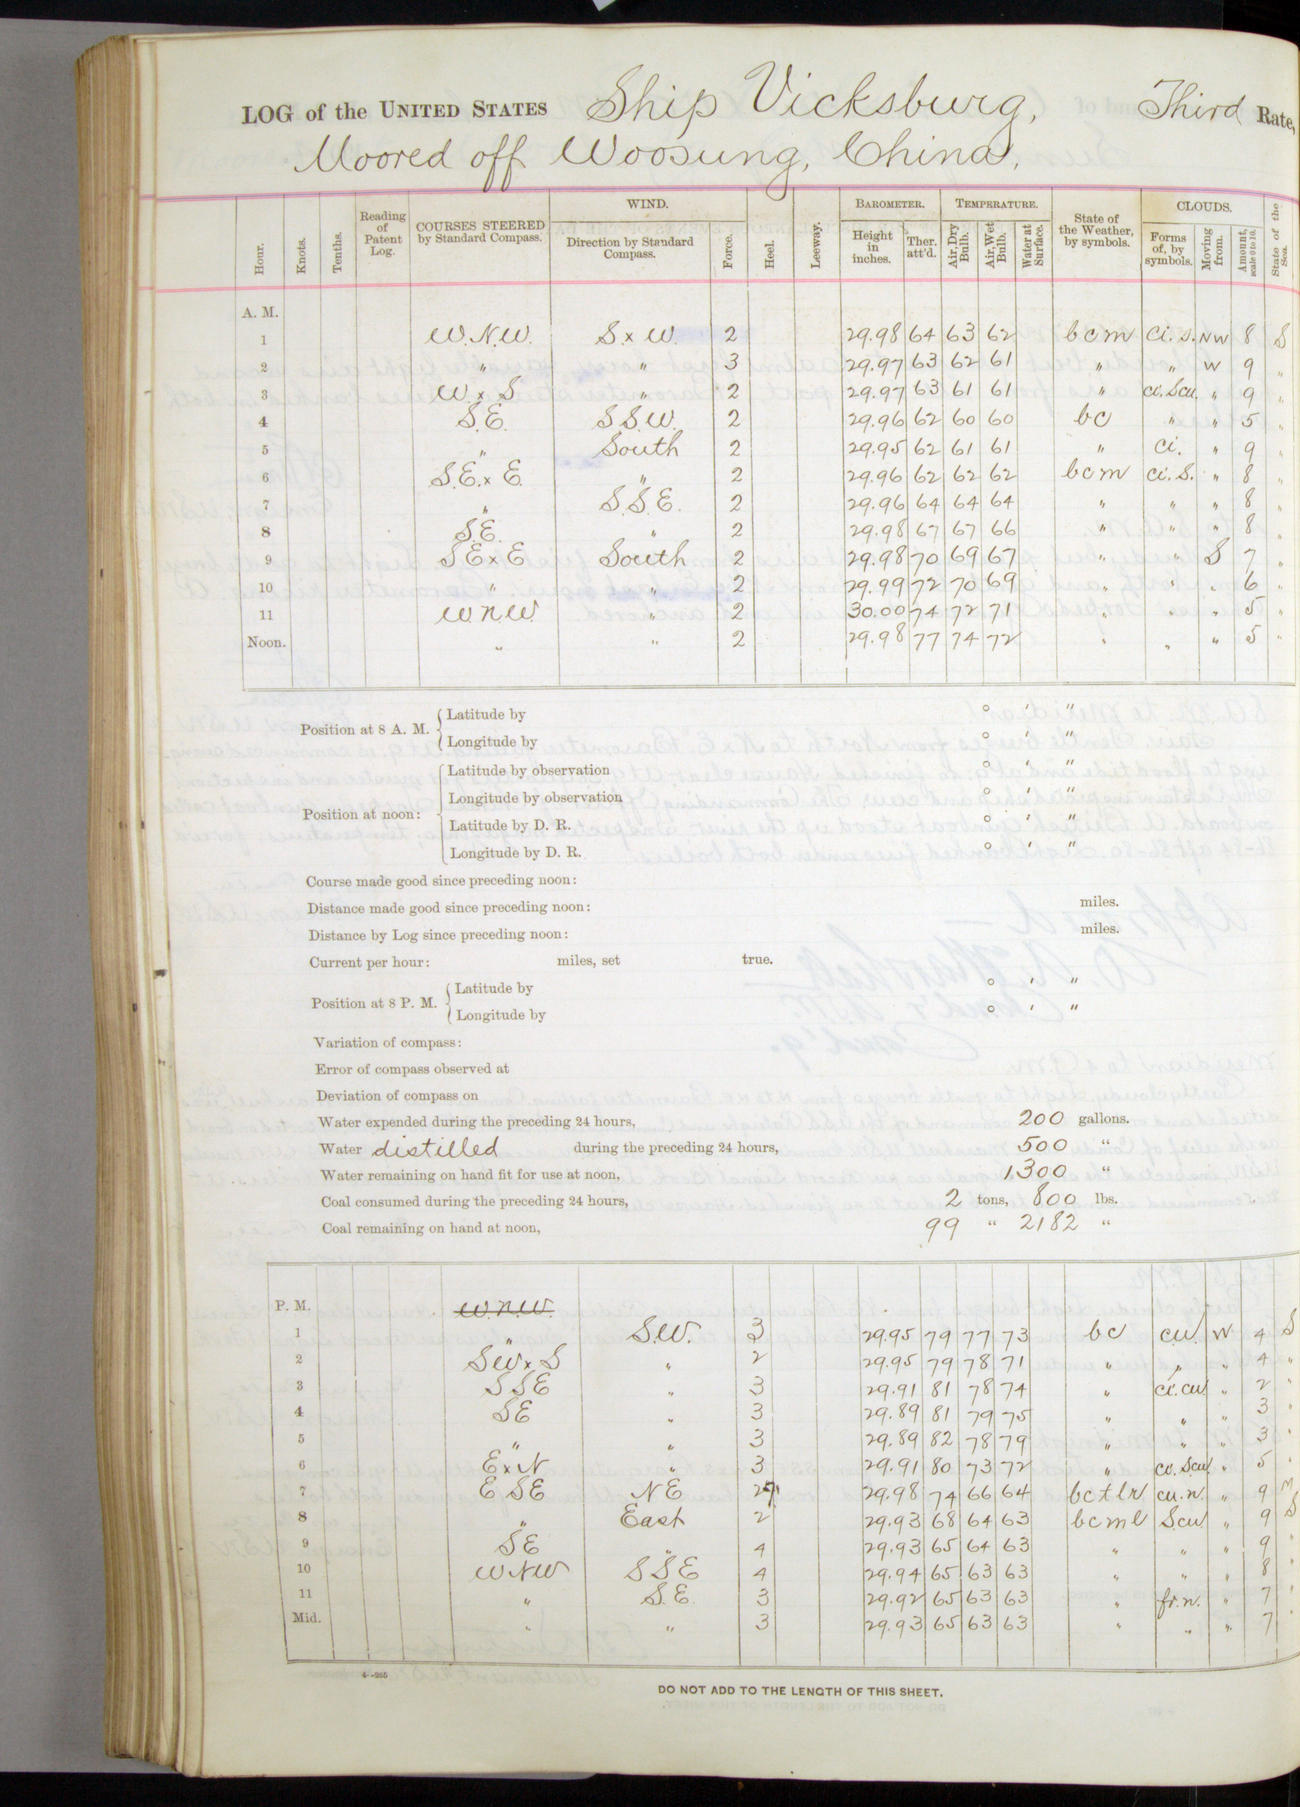 LOG of the UNITED STATES Ship Vicksburg, Third Rate,
Moored off Woosung, China,
Hour. Knots. Tenths. Reading of Patent Log. COURSES STEERED by Standard Compass. WIND. Direction by Standard Compass. Force. Heel. Leeway. BAROMETER. Height in inches. Ther. att'd. TEMPERATURE. Air, Dry Bulb. Air, Wet Bulb. Water at Surface. State of the Weather, by symbols. CLOUDS. Forms of, by symbols. Moving from. Amount, scale 0 to 10. State of the Sea.
A. M.
1 W.N.W. S.x W. 2 29.98 64 63 62 bcm Ci.S. NW 8 S
2 " " 3 29.97 63 62 61 " " W 9 "
3 W x S " 2 29.97 63 61 61 " ci.Scu. " 9 "
4 S.E. S.S.W. 2 29.96 62 60 60 bc " " 5 "
5 " South 2 29.95 62 61 61 " Ci. " 9 "
6 S.E. x E. " 2 29.96 62 62 62 bcm Ci.S. " 8 "
7 " S.S.E. 2 29.96 64 64 64 " " " 8 "
8 S.E. " 2 29.98 67 67 66 " " " 8 "
9 SExE South 2 29.98 70 69 67 " " S 7 "
10 " " 2 29.99 72 70 69 " " " 6 "
11 W.N.W. " 2 30.00 74 72 71 " " " 5 "
Noon. " " 2 29.98 77 74 72 " " " 5 "
Position at 8 A. M. Latitude by ° ' "
Longitude by ° ' "
Position at noon: Latitude by observation ° ' "
Longitude by observation ° ' "
Latitude by D. R. ° ' "
Longitude by D. R. ° ' "
Course made good since preceding noon:
Distance made good since preceding noon: miles.
Distance by Log since preceding noon: miles.
Current per hour: miles, set true.
Position at 8 P. M. Latitude by ° ' "
Longitude by ° ' "
Variation of compass:
Error of compass observed at
Deviation of compass on
Water expended during the preceding 24 hours, 200 gallons.
Water distilled during the preceding 24 hours, 500 "
Water remaining on hand fit for use at noon, 1,300 "
Coal consumed during the preceding 24 hours, 2 tons, 800 lbs.
Coal remaining on hand at noon, 99 " 2182 "
P. M. W.N.W.
1 " S.W. 3 29.95 79 77 73 bc cu. W 4 S
2 SWxS " 2 29.95 79 78 71 " " " 4 "
3 SSE " 3 29.91 81 78 74 " ci.cu " 2 "
4 SE " 3 29.89 81 79 75 " " " 3 "
5 " " 3 29.89 82 78 79 " " " 3 "
6 ExN " 3 29.91 80 73 72 " cu.Scu " 5 "
7 ESE NE 29.98 74 66 64 bctlr cu.n. " 9 M
8 " East 2 29.93 68 64 63 bcml Scu " 9 S
9 SE " 4 29.93 65 64 63 " " " 9 "
10 WNW SSE 4 29.94 65 63 63 " " " 8 "
11 " S.E. 3 29.92 65 63 63 " fr.n. " 7 "
Mid. " " 3 29.93 65 63 63 " " " 7 "
4--255
DO NOT ADD TO THE LENGTH OF THIS SHEET.